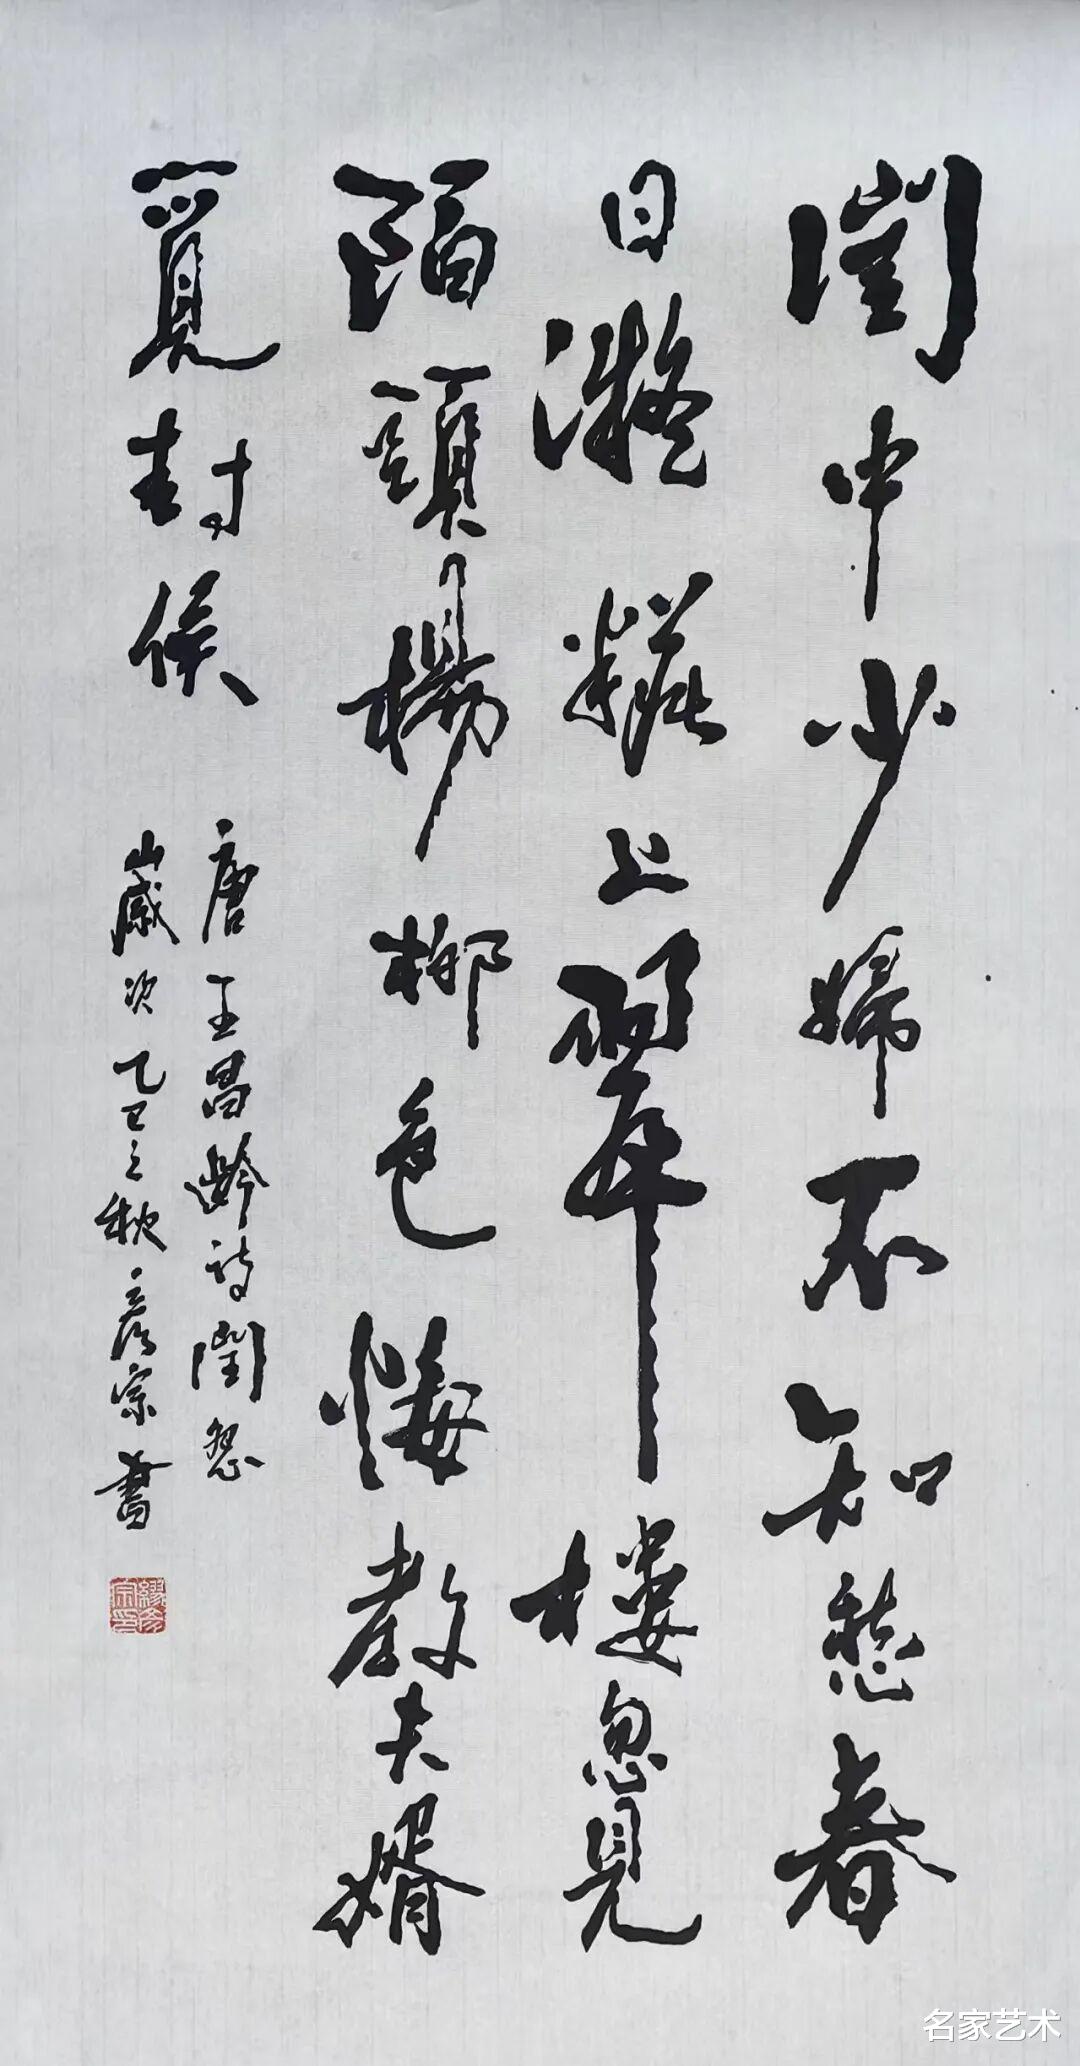 閨中少婦不知愁春
日凝糚上翠樓忽見
陌頭楊柳色悔教夫婿
覓封侯
唐王昌齡詩閨怨
歲次乙巳之秋彦宗書
繆彦宗印
名家艺术